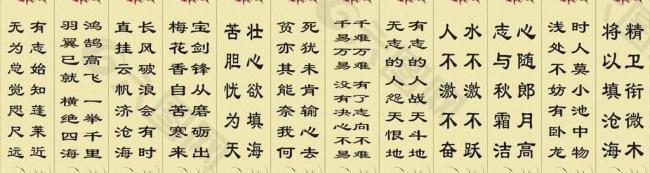 精卫衔微木
将以填沧海
时人莫小池中物
浅处不妨有卧龙
心随郎月高
志与秋霜洁
水不激不跃
人不激不奋
有志的人战天斗地
无志的人怨天恨地
千难万难 有了志向不难
千易万易 没有决心不易
死犹未肯输心去
贫亦其能奈我何
壮心欲填海
苦胆忧为天
宝剑锋从磨砺出
梅花香自苦寒来
长风破浪会有时
直挂云帆济沧海
鸿鹄高飞 一举千里
羽翼已就 横绝四海
有志始知蓬莱近
无为总觉咫尺远